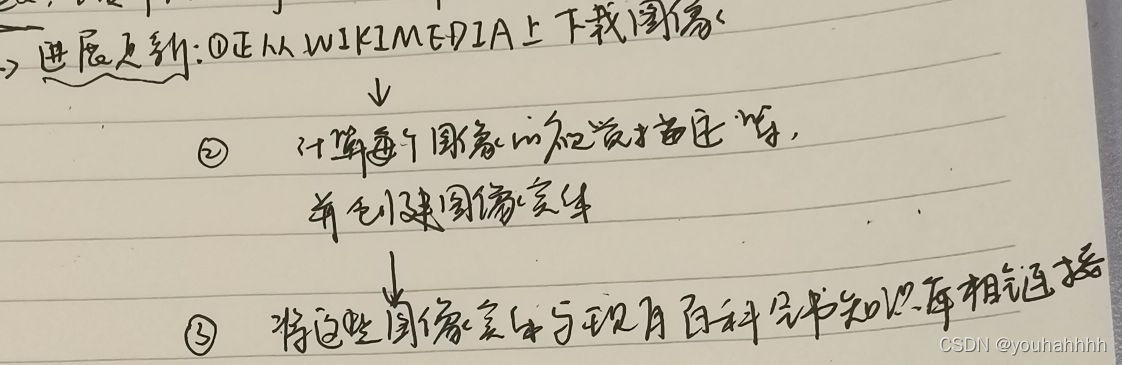 → 进展更新:①正从WIKIMEDIA上下载图像
↓
② 计算每个图像的视觉描述等,
并创建图像实体
↓
③ 将这些图像实体与现有百科全书知识库相链接
CSDN @youhahhhh